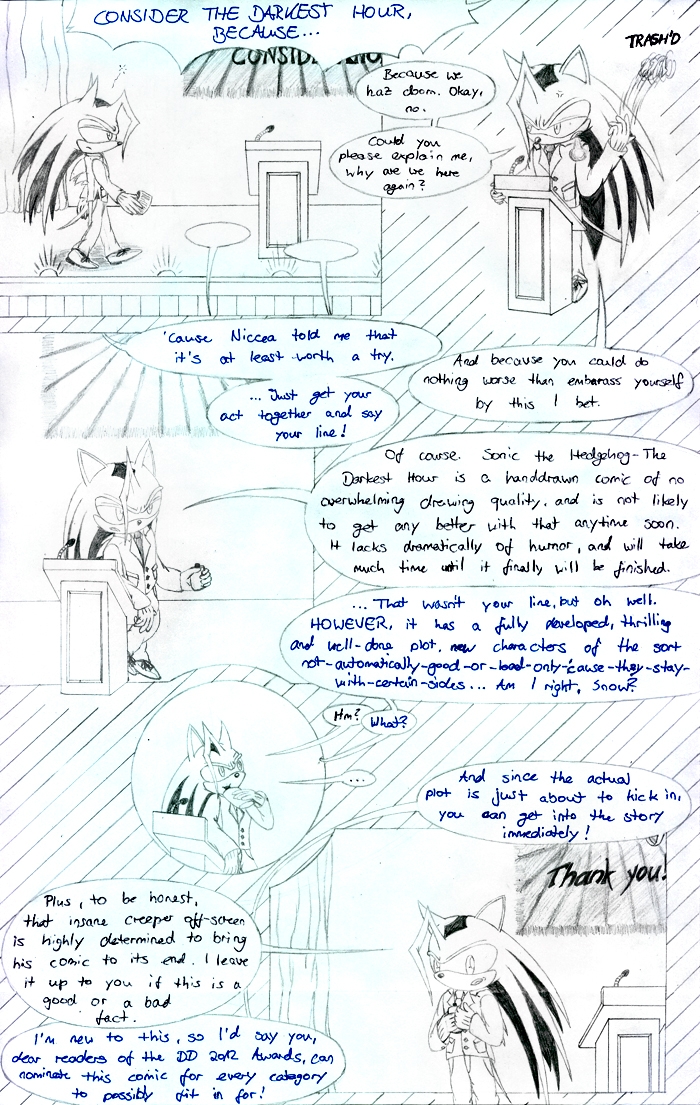 CONSIDER THE DARKEST HOUR,
BECAUSE...
TRASH'D
Because we
haz doom. Okay,
no.
Could you
please explain me,
why are we here
again?
'Cause Niccea told me that
it's at least worth a try.
And because you could do
nothing worse than embarass yourself
by this I bet.
... Just get your
act together and say
your line!
Of course. Sonic the Hedgehog-The
Darkest Hour is a handdrawn comic of no
overwhelming drawing quality, and is not likely
to get any better with that anytime soon.
It lacks dramatically of humor, and will take
much time until it finally will be finished.
... That wasn't your line, but oh well.
HOWEVER, it has a fully developed, thrilling
and well-done plot, new characters of the sort
not-automatically-good-or-bad-only-cause-they-stay-
with-certain-sides... Am I right, Snow?
Hm?
What?
...
And since the actual
plot is just about to kick in,
you can get into the story
immediately!
Thank you!
Plus, to be honest,
that insane creeper off-screen
is highly determined to bring
his comic to its end. I leave
it up to you if this is a
good or a bad
fact.
I'm new to this, so I'd say you,
dear readers of the DD 2012 Awards, can
nominate this comic for every category
to possibly fit in for!